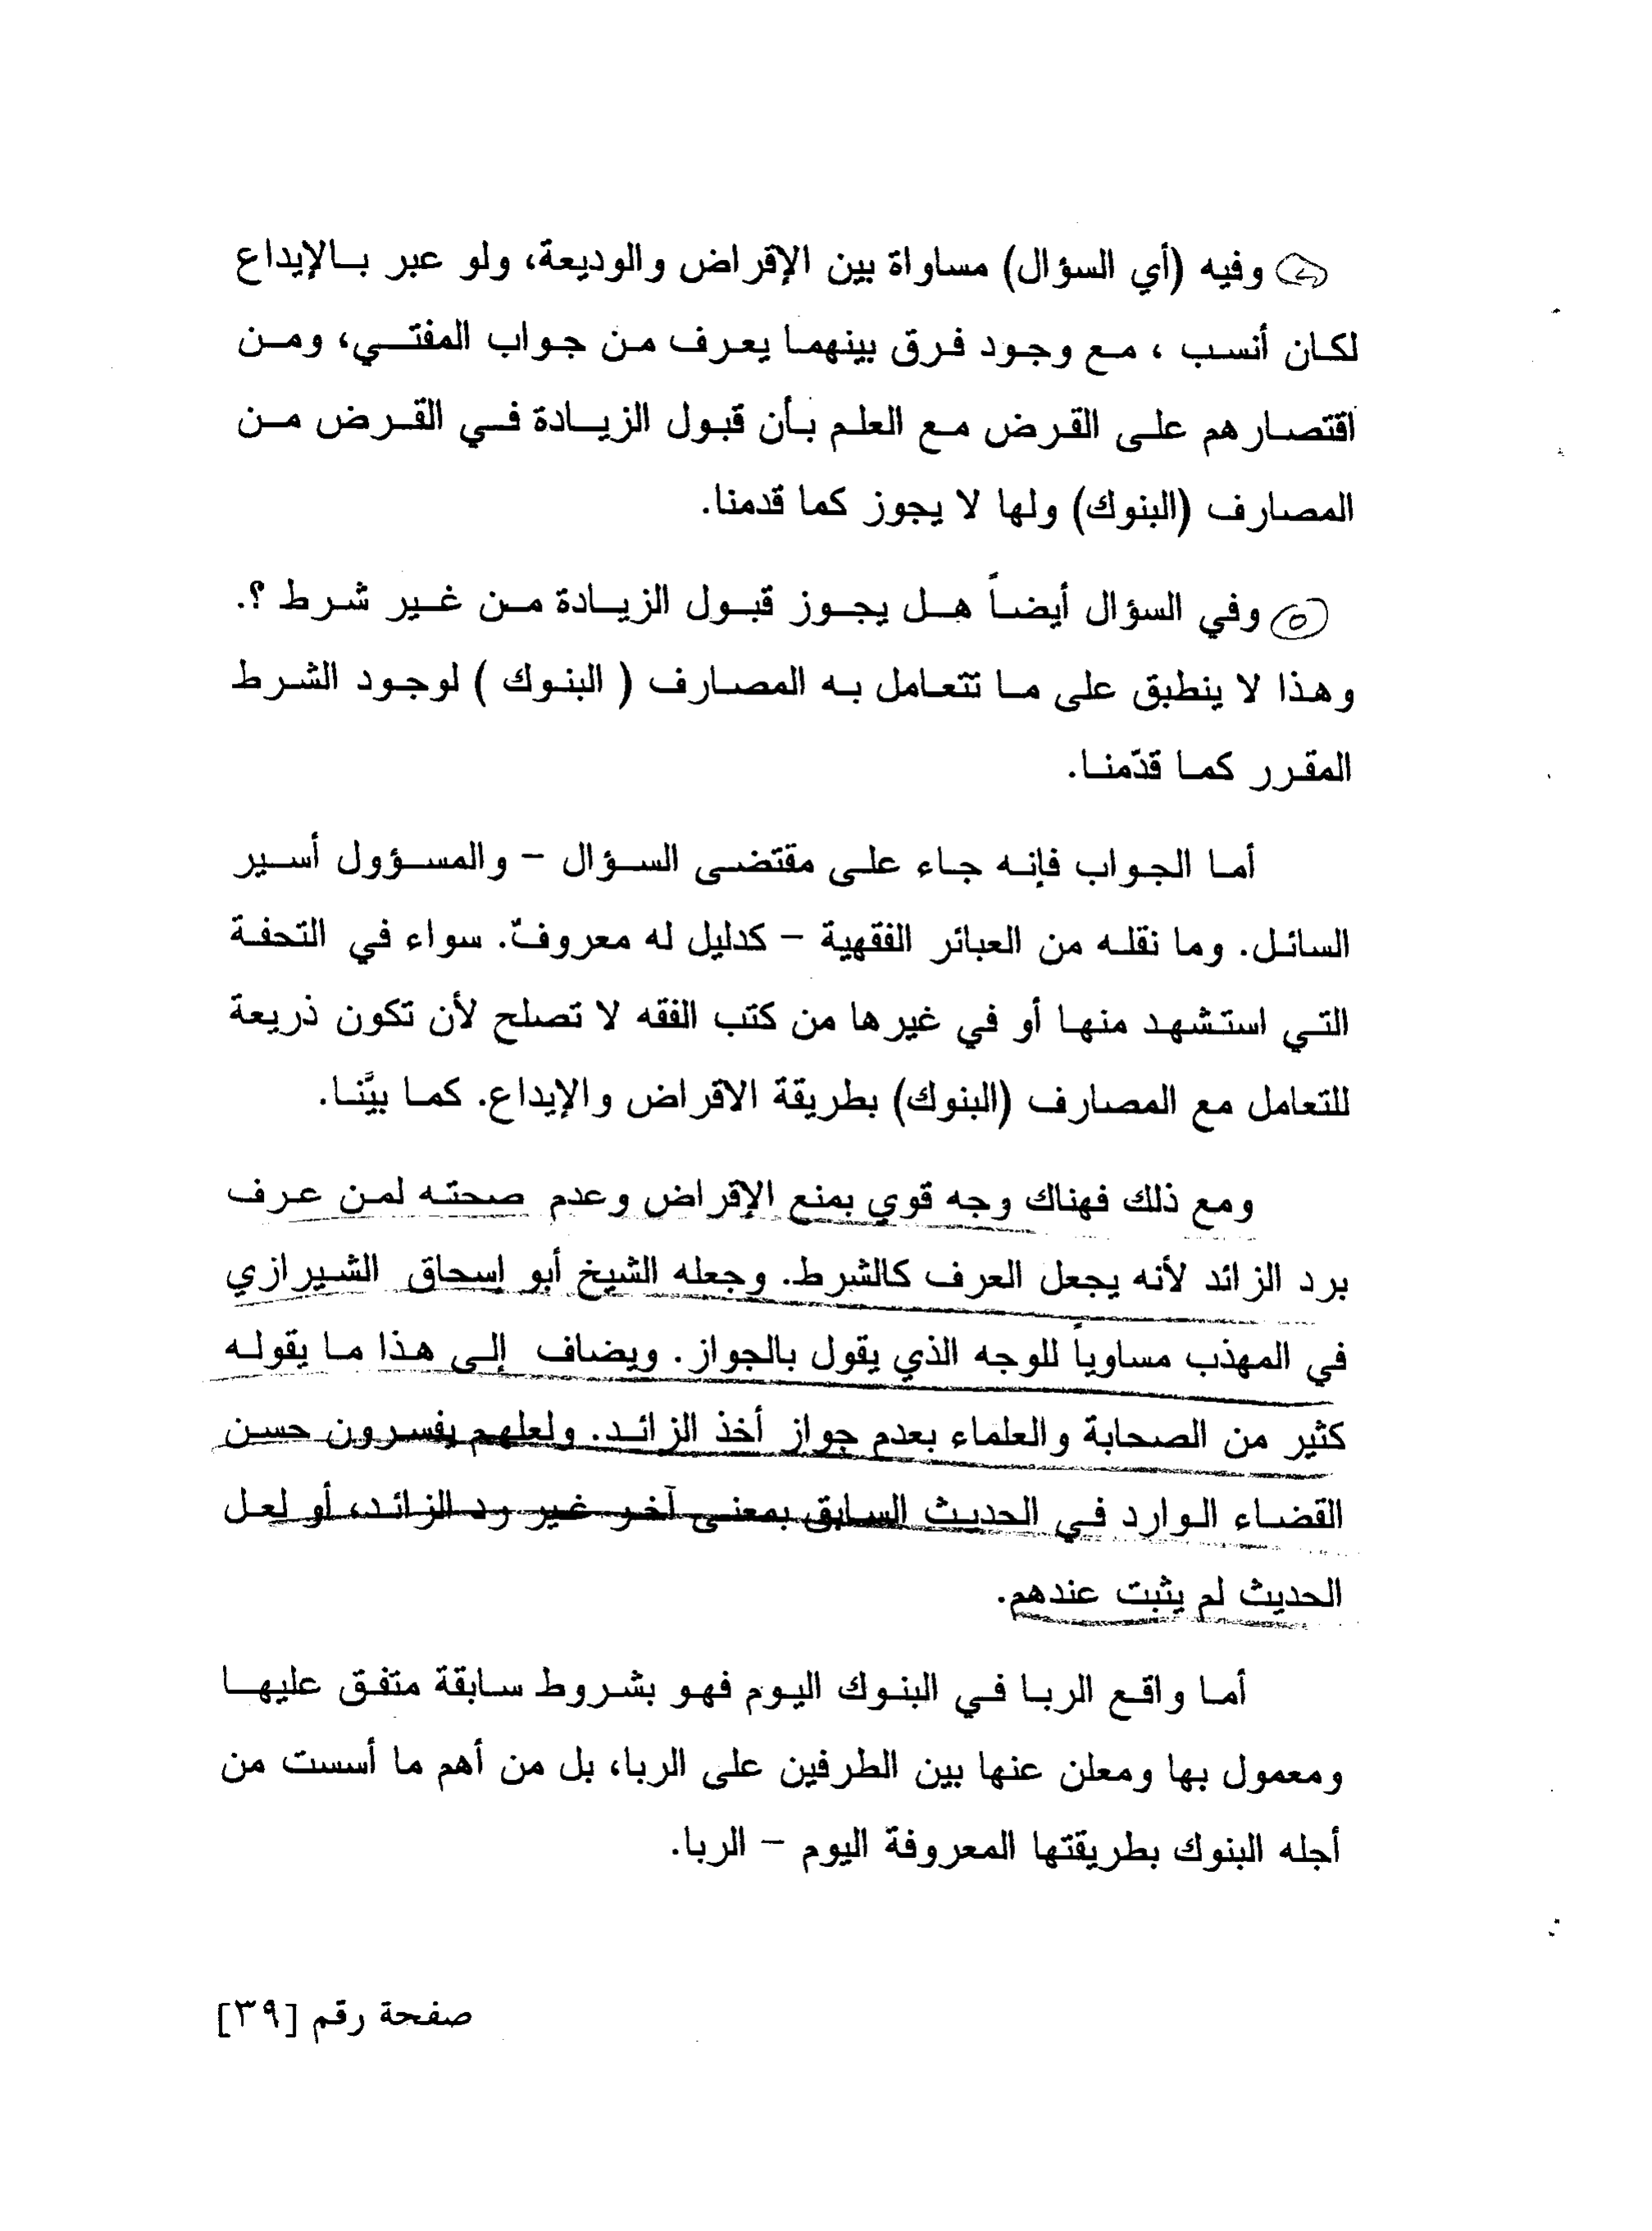 وفيه (أي السؤال) مساواة بين الإقراض والوديعة، ولو عبر بالإيداع
لكان أنسب ، مع وجود فرق بينهما يعرف من جواب المفتي، ومن
اقتصارهم على القرض مع العلم بأن قبول الزيادة في القرض من
المصارف (البنوك) ولها لا يجوز كما قدمنا.
٥ وفي السؤال أيضاً هل يجوز قبول الزيادة من غير شرط ؟.
وهذا لا ينطبق على ما تتعامل به المصارف ( البنوك ) لوجود الشرط
المقرر كما قدّمنا.
أما الجواب فإنه جاء على مقتضى السؤال – والمسؤول أسير
السائل. وما نقله من العبائر الفقهية – كدليل له معروفٌ. سواء في التحفة
التي استشهد منها أو في غيرها من كتب الفقه لا تصلح لأن تكون ذريعة
للتعامل مع المصارف (البنوك) بطريقة الاقراض والإيداع. كما بيَّنا.
ومع ذلك فهناك وجه قوي بمنع الإقراض وعدم صحته لمن عرف
برد الزائد لأنه يجعل العرف كالشرط. وجعله الشيخ أبو إسحاق الشيرازي
في المهذب مساوياً للوجه الذي يقول بالجواز. ويضاف إلى هذا ما يقوله
كثير من الصحابة والعلماء بعدم جواز أخذ الزائد. ولعلهم يفسرون حسن
القضاء الوارد في الحديث السابق بمعنى آخر غير رد الزائد، أو لعل
الحديث لم يثبت عندهم.
أما واقع الربا في البنوك اليوم فهو بشروط سابقة متفق عليها
ومعمول بها ومعلن عنها بين الطرفين على الربا، بل من أهم ما أسست من
أجله البنوك بطريقتها المعروفة اليوم – الربا.
صفحة رقم [٣٩]